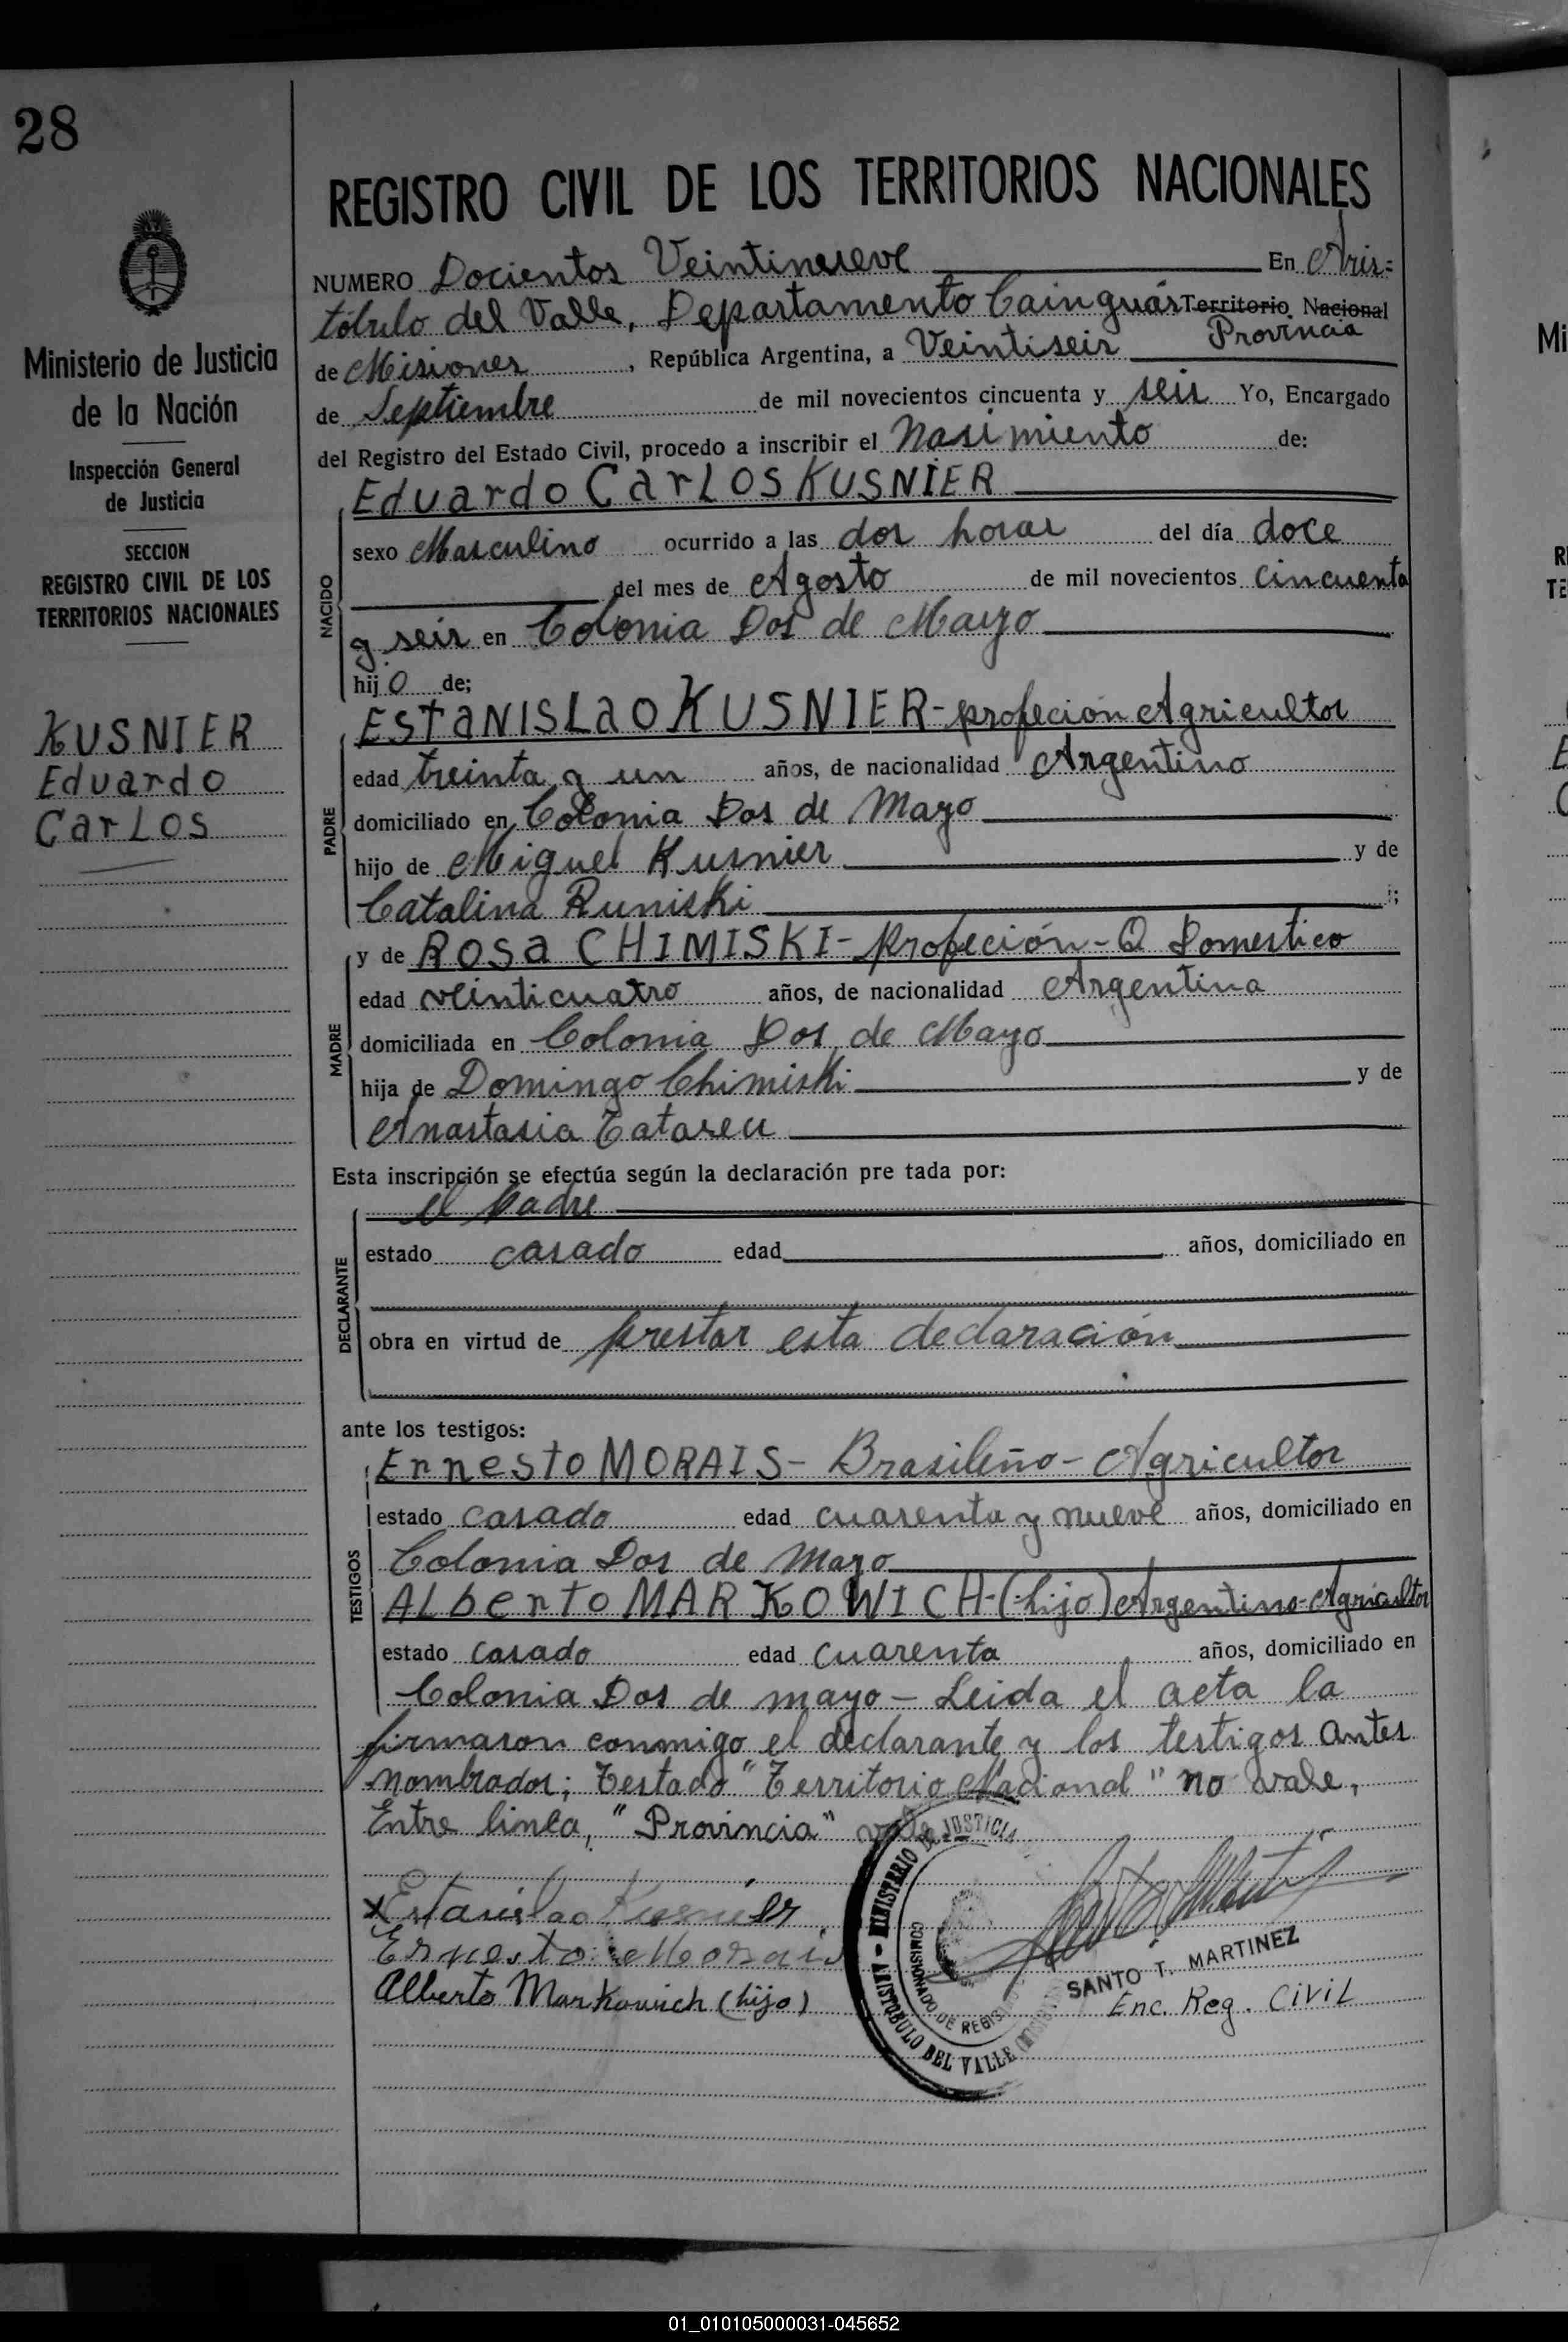 28
Ministerio de Justicia
de la Nación
Inspección General
de Justicia
SECCION
REGISTRO CIVIL DE LOS
TERRITORIOS NACIONALES
KUSNIER
Eduardo
Carlos
REGISTRO CIVIL DE LOS TERRITORIOS NACIONALES
NUMERO Docientos Veintinueve En Aris=
tóbulo del Valle, Departamento Cainguás Territorio Nacional
Provincia
de Misiones, República Argentina, a Veintiseis
de Septiembre de mil novecientos cincuenta y seis Yo, Encargado
del Registro del Estado Civil, procedo a inscribir el Nasimiento de:
Eduardo Carlos KUSNIER
NACIDO
sexo Masculino ocurrido a las dos horas del día doce
del mes de Agosto de mil novecientos cincuenta
y seis en Colonia Dos de Mayo
hijo de;
PADRE
ESTANISLAO KUSNIER - profeción Agricultor
edad treinta y un años, de nacionalidad Argentino
domiciliado en Colonia Dos de Mayo
hijo de Miguel Kusnier y de
Catalina Runiski ;
MADRE
y de ROSA CHIMISKI - Profeción - Q Domestico
edad veinticuatro años, de nacionalidad Argentina
domiciliada en Colonia Dos de Mayo
hija de Domingo Chimiski y de
Anastasia Tatareu
Esta inscripción se efectúa según la declaración pre tada por:
DECLARANTE
el padre
estado casado edad años, domiciliado en
obra en virtud de prestar esta declaración
ante los testigos:
TESTIGOS
Ernesto MORAIS - Brasileño - Agricultor
estado casado edad cuarenta y nueve años, domiciliado en
Colonia Dos de Mayo
Alberto MARKOWICH - (hijo) Argentino - Agricultor
estado casado edad cuarenta años, domiciliado en
Colonia Dos de mayo - Leida el acta la
firmaron conmigo el declarante y los testigos antes
nombrados; Testado "Territorio Nacional" no vale,
Entre linea, "Provincia" vale
Estanislao Kusnier
Ernesto Morais
Alberto Markowich (hijo)
MINISTERIO DE JUSTICIA
ARISTOBULO DEL VALLE
COMISIONADO DE REGISTRO
SANTO T. MARTINEZ
Enc. Reg. Civil
01_010105000031-045652